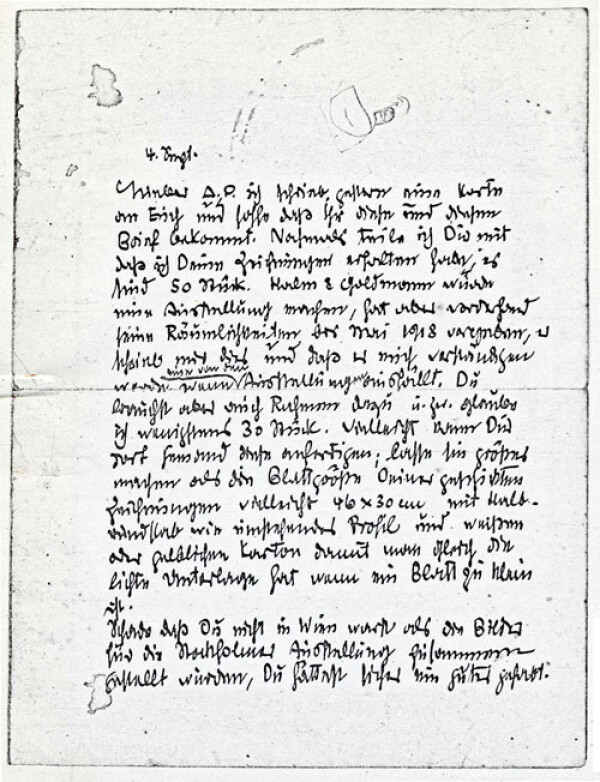 4. Sept.
Lieber A. P. ich schrieb gestern eine Karte
an Euch und hoffe daß Ihr diese und diesen
Brief bekommt. Nochmals teile ich Dir mit
daß ich Deine Zeichnungen erhalten habe, es
sind 50 Stück. Halm & Goldmann würde
eine Ausstellung machen, hat aber vorderhand
seine Räumlichkeiten bis Mai 1918 vergeben, er
schrieb mir dies und daß er mich verständigen
werde wenn eine von den Ausstellungen ausfällt. Du
brauchst aber auch Rahmen dazu u. zw. glaube
ich wenigstens 30 Stück. Vielleicht kann Dir
dort jemand diese anfertigen; lasse sie größer
machen als die Blattgröße Deiner geschickten
Zeichnungen vielleicht 46 x 30 cm mit Halb-
rundstab wie umstehendes Profil und weißen
oder gelblichen Karton damit man gleich die
lichte Unterlage hat wenn ein Blatt zu klein
ist.
Schade daß Du nicht in Wien warst als die Bilder
für die Stockholmer Ausstellung zusammen
gestellt wurden, Du hättest sicher ein gutes gehabt.